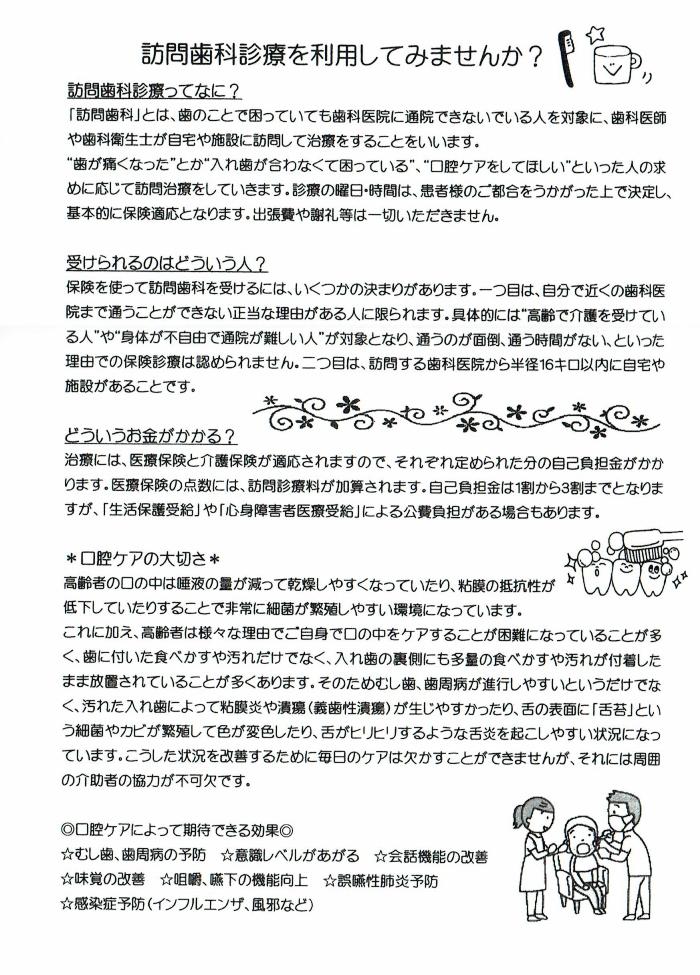 訪問歯科診療を利用してみませんか？
訪問歯科診療ってなに？
「訪問歯科」とは、歯のことで困っていても歯科医院に通院できないでいる人を対象に、歯科医師
や歯科衛生士が自宅や施設に訪問して治療をすることをいいます。
“歯が痛くなった”とか“入れ歯が合わなくて困っている”、“口腔ケアをしてほしい”といった人の求
めに応じて訪問治療をしていきます。診療の曜日・時間は、患者様のご都合をうかがった上で決定し、
基本的に保険適応となります。出張費や謝礼等は一切いただきません。
受けられるのはどういう人？
保険を使って訪問歯科を受けるには、いくつかの決まりがあります。一つ目は、自分で近くの歯科医
院まで通うことができない正当な理由がある人に限られます。具体的には“高齢で介護を受けてい
る人”や“身体が不自由で通院が難しい人”が対象となり、通うのが面倒、通う時間がない、といった
理由での保険診療は認められません。二つ目は、訪問する歯科医院から半径16キロ以内に自宅や
施設があることです。
どういうお金がかかる？
治療には、医療保険と介護保険が適応されますので、それぞれ定められた分の自己負担金がかか
ります。医療保険の点数には、訪問診療料が加算されます。自己負担金は1割から3割までとなりま
すが、「生活保護受給」や「心身障害者医療受給」による公費負担がある場合もあります。
＊口腔ケアの大切さ＊
高齢者の口の中は唾液の量が減って乾燥しやすくなっていたり、粘膜の抵抗性が
低下していたりすることで非常に細菌が繁殖しやすい環境になっています。
これに加え、高齢者は様々な理由でご自身で口の中をケアすることが困難になっていることが多
く、歯に付いた食べかすや汚れだけでなく、入れ歯の裏側にも多量の食べかすや汚れが付着した
まま放置されていることが多くあります。そのためむし歯、歯周病が進行しやすいというだけでな
く、汚れた入れ歯によって粘膜炎や潰瘍（義歯性潰瘍）が生じやすかったり、舌の表面に「舌苔」とい
う細菌やカビが繁殖して色が変色したり、舌がヒリヒリするような舌炎を起こしやすい状況になっ
ています。こうした状況を改善するために毎日のケアは欠かすことができませんが、それには周囲
の介助者の協力が不可欠です。
◎口腔ケアによって期待できる効果◎
☆むし歯、歯周病の予防　☆意識レベルがあがる　☆会話機能の改善
☆味覚の改善　☆咀嚼、嚥下の機能向上　☆誤嚥性肺炎予防
☆感染症予防（インフルエンザ、風邪など）